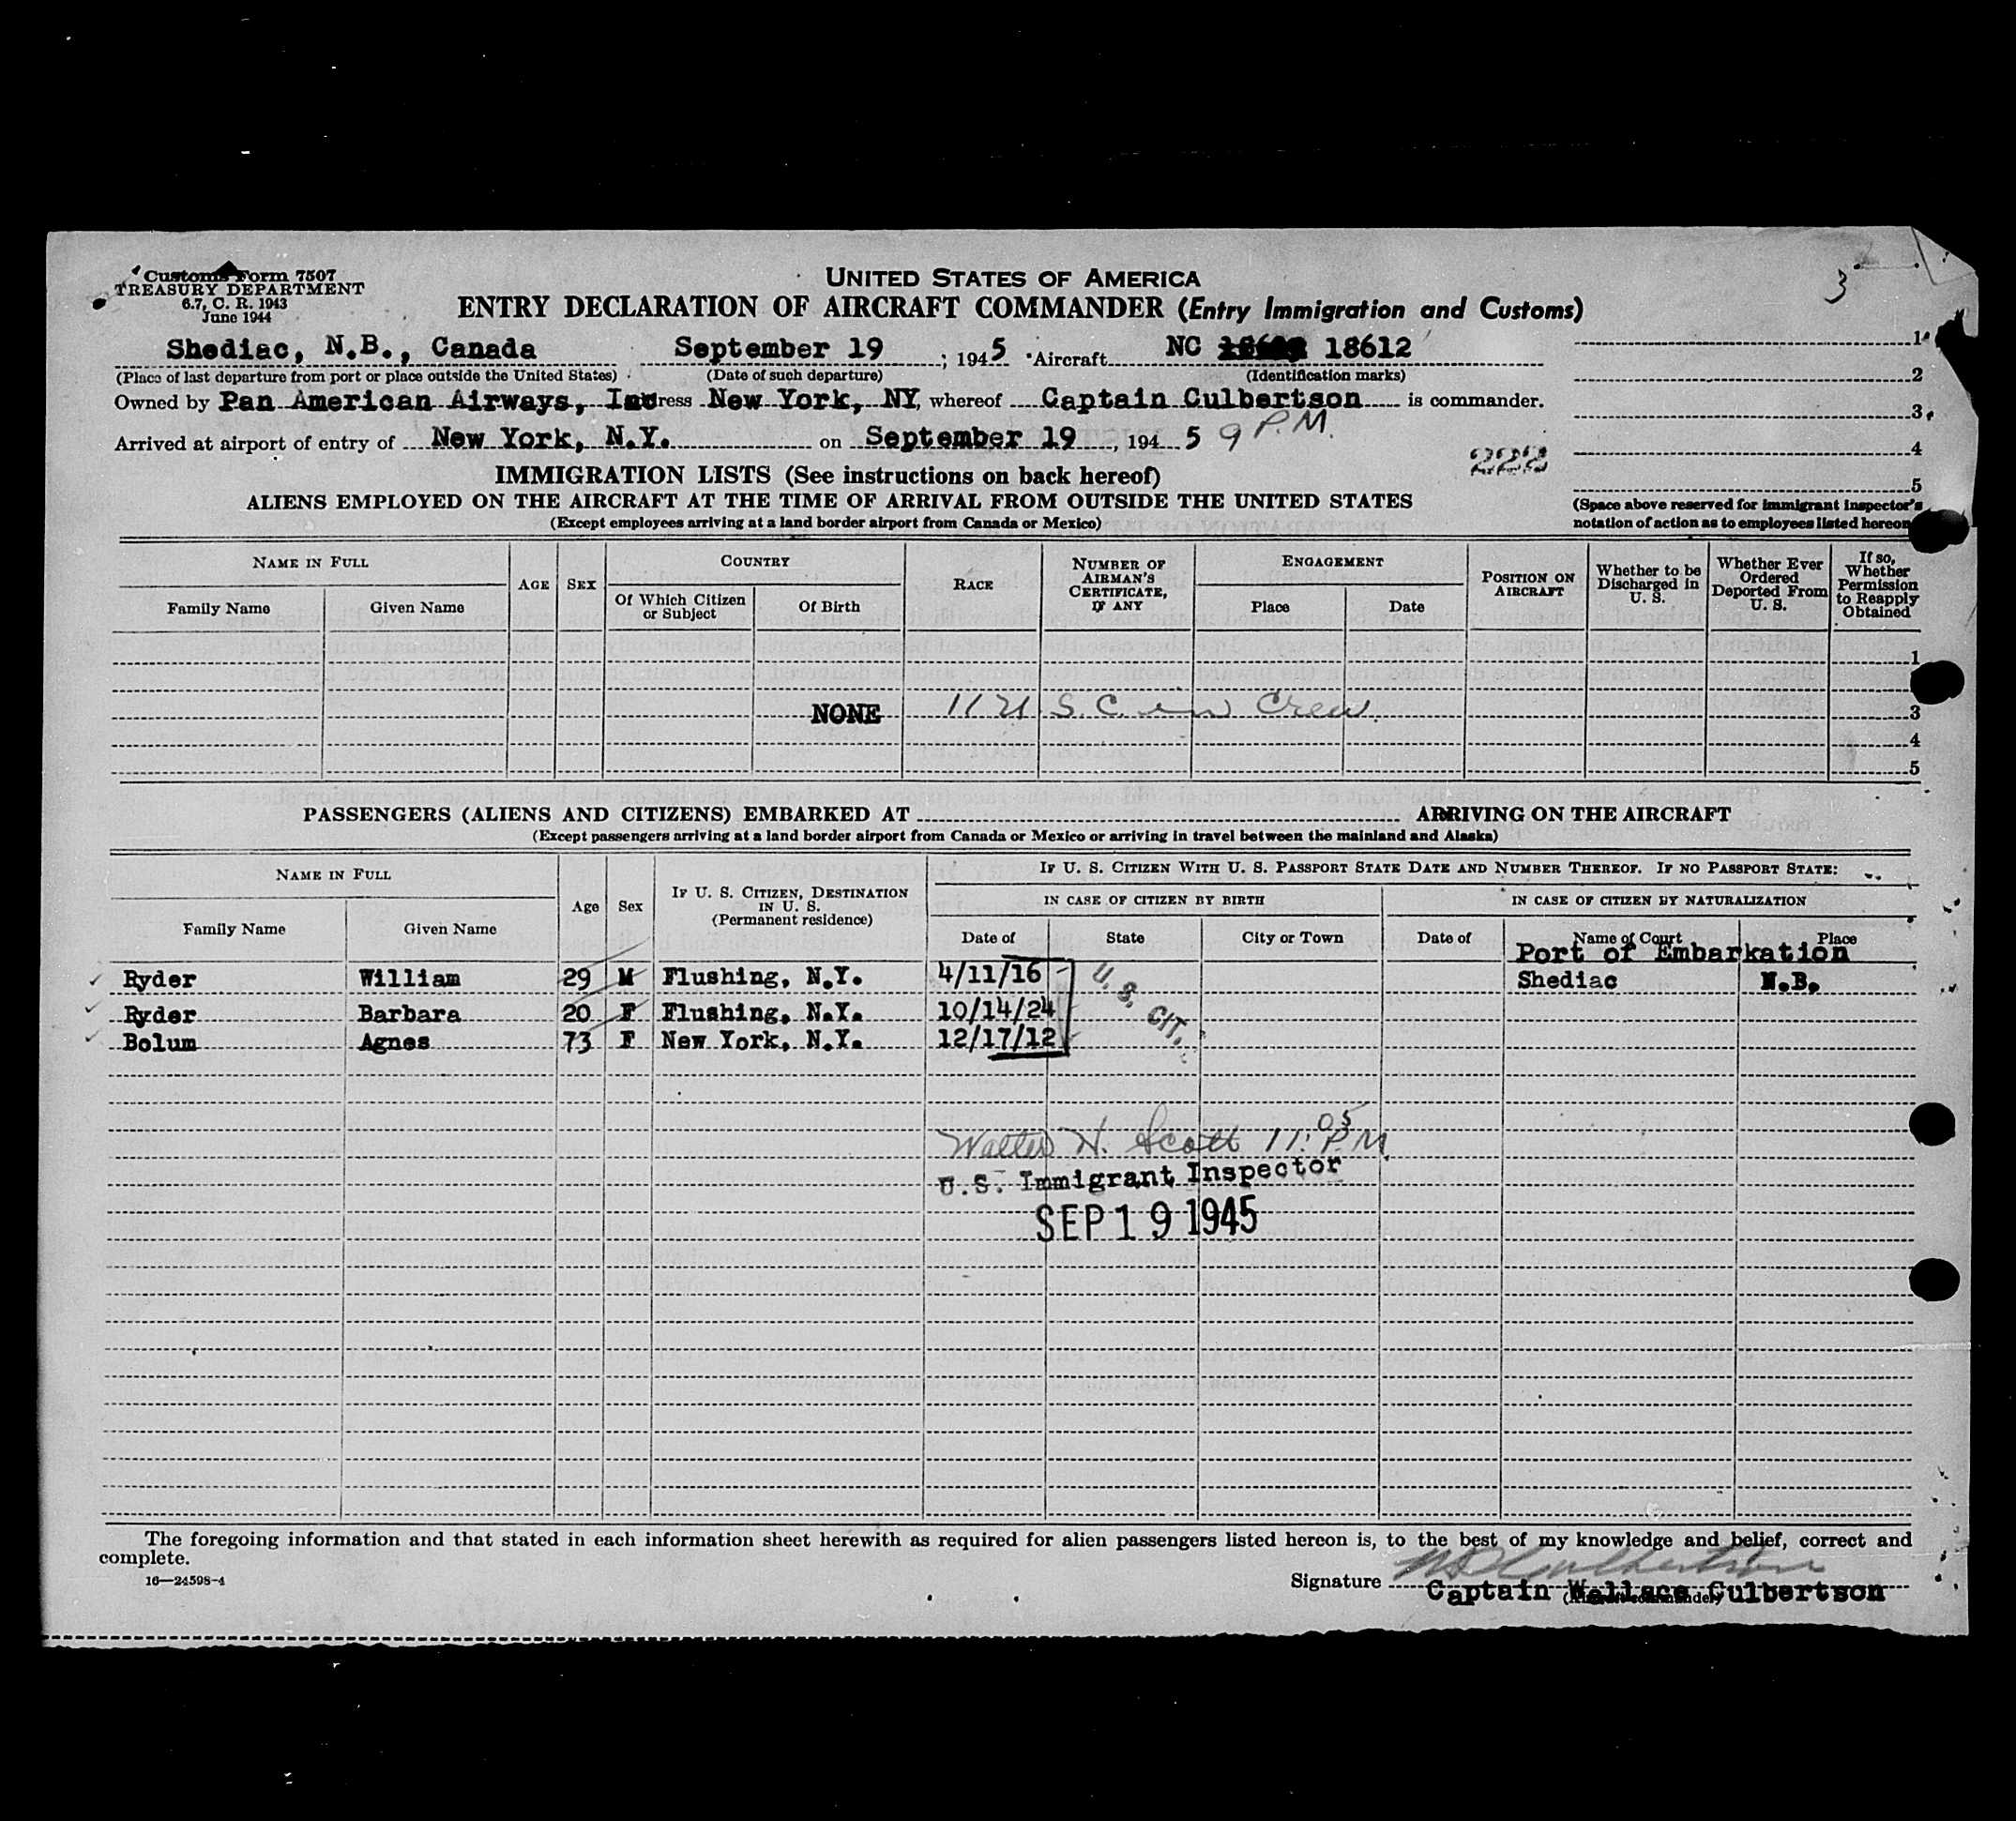 Customs Form 7507
TREASURY DEPARTMENT
6.7, C. R. 1943
June 1944
UNITED STATES OF AMERICA
ENTRY DECLARATION OF AIRCRAFT COMMANDER (Entry Immigration and Customs)
3
Shediac, N.B., Canada September 19 ; 1945 Aircraft NC 18612
(Place of last departure from port or place outside the United States) (Date of such departure) (Identification marks)
Owned by Pan American Airways, Inc. New York, NY, whereof Captain Culbertson is commander.
Arrived at airport of entry of New York, N.Y. on September 19, 1945 9 P.M.
1
2
3
4
5
222
IMMIGRATION LISTS (See instructions on back hereof)
ALIENS EMPLOYED ON THE AIRCRAFT AT THE TIME OF ARRIVAL FROM OUTSIDE THE UNITED STATES
(Except employees arriving at a land border airport from Canada or Mexico)
(Space above reserved for immigrant inspector's
notation of action as to employees listed hereon
NAME IN FULL
Family Name Given Name
AGE SEX
COUNTRY
Of Which Citizen or Subject Of Birth
RACE
NUMBER OF AIRMAN'S CERTIFICATE, IF ANY
ENGAGEMENT
Place Date
POSITION ON AIRCRAFT
Whether to be Discharged in U. S.
Whether Ever Ordered Deported From U. S.
If so, Whether Permission to Reapply Obtained
1
NONE 11 U.S.C. in Crew. 3
4
5
PASSENGERS (ALIENS AND CITIZENS) EMBARKED AT ARRIVING ON THE AIRCRAFT
(Except passengers arriving at a land border airport from Canada or Mexico or arriving in travel between the mainland and Alaska)
NAME IN FULL
Family Name Given Name
Age Sex
IF U. S. CITIZEN, DESTINATION IN U. S.
(Permanent residence)
IF U. S. CITIZEN WITH U. S. PASSPORT STATE DATE AND NUMBER THEREOF. IF NO PASSPORT STATE:
IN CASE OF CITIZEN BY BIRTH IN CASE OF CITIZEN BY NATURALIZATION
Date of State City or Town Date of Name of Court Place
Port of Embarkation
Ryder William 29 M Flushing, N.Y. 4/11/16 Shediac N.B.
Ryder Barbara 20 F Flushing, N.Y. 10/14/24
Bolum Agnes 73 F New York, N.Y. 12/17/12
U. S. CIT.
Walter H. Scott 11:05 P.M.
U.S. Immigrant Inspector
SEP 19 1945
The foregoing information and that stated in each information sheet herewith as required for alien passengers listed hereon is, to the best of my knowledge and belief, correct and
complete.
16—24598-4
Signature Culbertson
Captain Wallace Culbertson